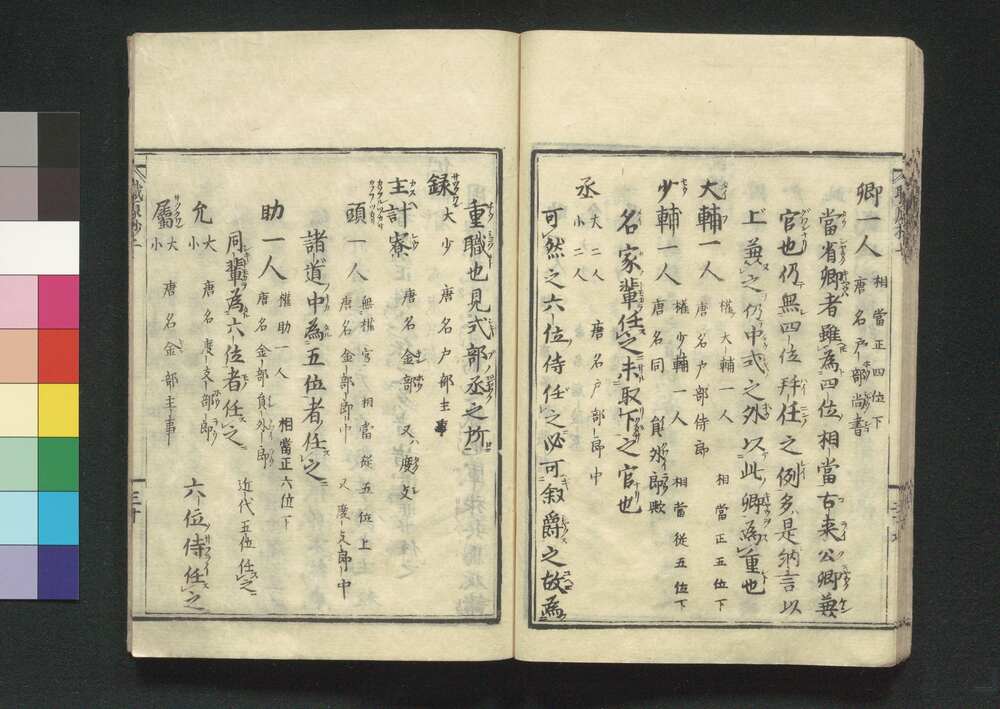 卿一人 相當正四位下
唐名戸部尚書
當省卿者雖為四位相當古来公卿兼
官也仍無四位拜任之例多是納言以
上兼之仍中式之外以此卿為重也
大輔一人 權大輔一人 相當正五位下
唐名戸部侍郎
少輔一人 權少輔一人 相當従五位下
唐名同 員外郎歟
名家輩任之未取下之官也
丞 大二人 唐名戸部郎中
小二人
可然之六位侍任之必可叙爵之故為
重職也見式部丞之所
録 大少 唐名戸部主事
主計寮 唐名金部 又度支
頭一人 無權官相當従五位上
唐名金部郎中 又度支郎中
諸道中為五位者任之
助一人 權助一人 相當正六位下 近代五位任之
唐名金部員外郎
同輩為六位者任之
允 大 唐名度支部郎 六位侍任之
小
属 大 唐名金部主事
小
職原抄二
三十